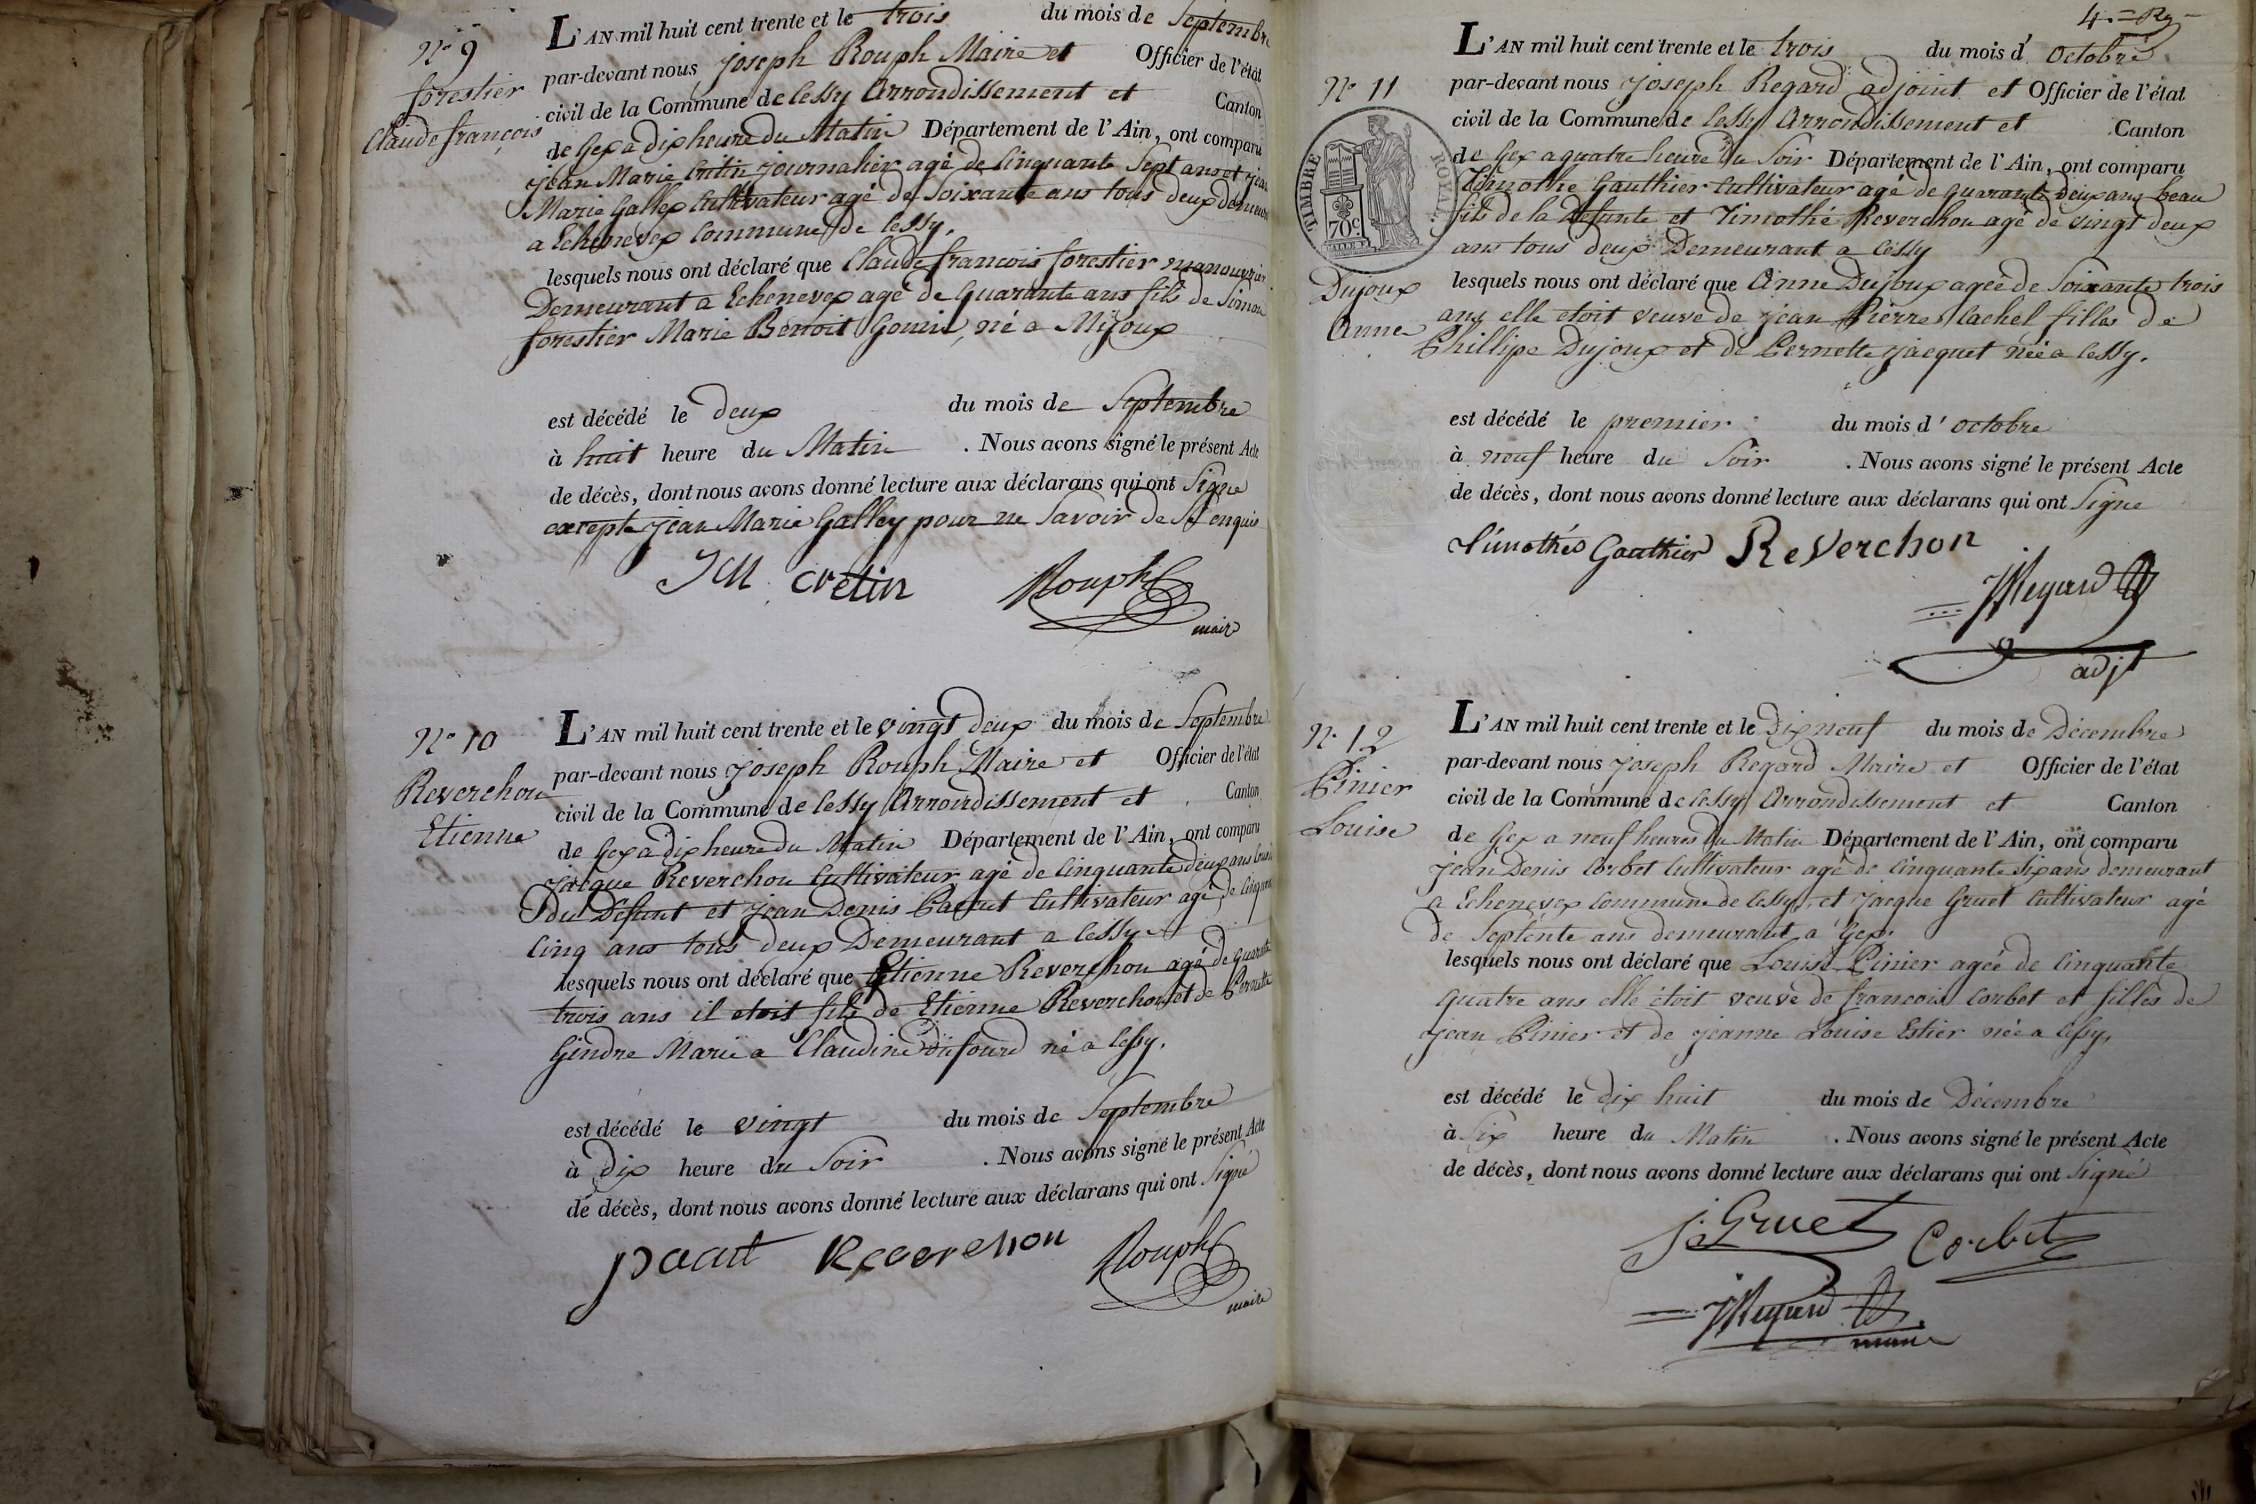 N° 9
forestier
Claude françois
L'AN mil huit cent trente et le trois du mois de Septembre
par-devant nous joseph Rouph Maire et Officier de l'état
civil de la Commune de Cessy Arrondissement et Canton
de Gex a dix heure du Matin Département de l'Ain, ont comparu
jean Marie Critin journalier agé de Cinquante Sept ans et jean
Marie Galley Cultivateur agé de Soixante ans tous deux demeurant
a Echenevex Commune de Cessy.
lesquels nous ont déclaré que Claude francois forestier manouvrier
Demeurant a Echenevex agé de Quarante ans fils de Simon
forestier Marie Benoit Gouin, né a Mijoux
est décédé le deux du mois de Septembre
à huit heure du Matin . Nous avons signé le présent Acte
de décès, dont nous avons donné lecture aux déclarans qui ont Signe
excepte jean Marie Galley pour ne Savoir de St enquis
JM cretin Rouph
maire
N° 10
Reverchon
Etienne
L'AN mil huit cent trente et le vingt deux du mois de Septembre
par-devant nous joseph Rouph Maire et Officier de l'état
civil de la Commune de Cessy Arrondissement et Canton
de Gex a dix heure du Matin Département de l'Ain, ont comparu
jacque Reverchon Cultivateur agé de Cinquante deux ans
du Défunt et jean Denis Pacaut Cultivateur agé de Cinquante
Cinq ans tous deux Demeurant a Cessy
lesquels nous ont déclaré que Etienne Reverchon agé de quarante
trois ans il etoit fils de Etienne Reverchon et de Pernette
Gindre Marié a Claudine dufour né a Cessy.
est décédé le vingt du mois de Septembre
à Dix heure du Soir . Nous avons signé le présent Acte
de décès, dont nous avons donné lecture aux déclarans qui ont Signé
pacaut Reverchon Rouph
maire
4.e Rg
N° 11
TIMBRE ROYAL
70c
Dujoux
Anne
L'AN mil huit cent trente et le trois du mois d' Octobre
par-devant nous joseph Regard adjoint et Officier de l'état
civil de la Commune de Cessy Arrondissement et Canton
de Gex a quatre heure du Soir Département de l'Ain, ont comparu
Timothe Gauthier Cultivateur agé de quarante deux ans beau
fils de la Défunte et Timothé Reverchon agé de vingt deux
ans tous deux Demeurant a Cessy
lesquels nous ont déclaré que Anne Dujoux agée de Soixante trois
ans elle etoit veuve de jean Pierre Cachel filles de
Phillipe Dujoux et de Pernette jacquet née a Cessy.
est décédé le premier du mois d' octobre
à neuf heure du Soir . Nous avons signé le présent Acte
de décès, dont nous avons donné lecture aux déclarans qui ont Signe
Timothés Gauthier Reverchon
JRegard
adjt
N° 12
Pinier
Louise
L'AN mil huit cent trente et le Dix neuf du mois de Décembre
par-devant nous joseph Regard Maire et Officier de l'état
civil de la Commune de Cessy Arrondissement et Canton
de Gex a neuf heures du Matin Département de l'Ain, ont comparu
jean Denis Corbet Cultivateur agé de Cinquante Six ans demeurant
a Echenevex Commune de Cessy, et jacque Gruet Cultivateur agé
de Septente ans demeurant a Gex.
lesquels nous ont déclaré que Louise Pinier agée de Cinquante
quatre ans elle étoit veuve de francois Corbet et filles de
jean Pinier et de jeanne Louise Estier née a Cessy,
est décédé le dix huit du mois de Décembre
à Six heure du Matin . Nous avons signé le présent Acte
de décès, dont nous avons donné lecture aux déclarans qui ont Signé
J Gruet Corbet
JRegard
maire